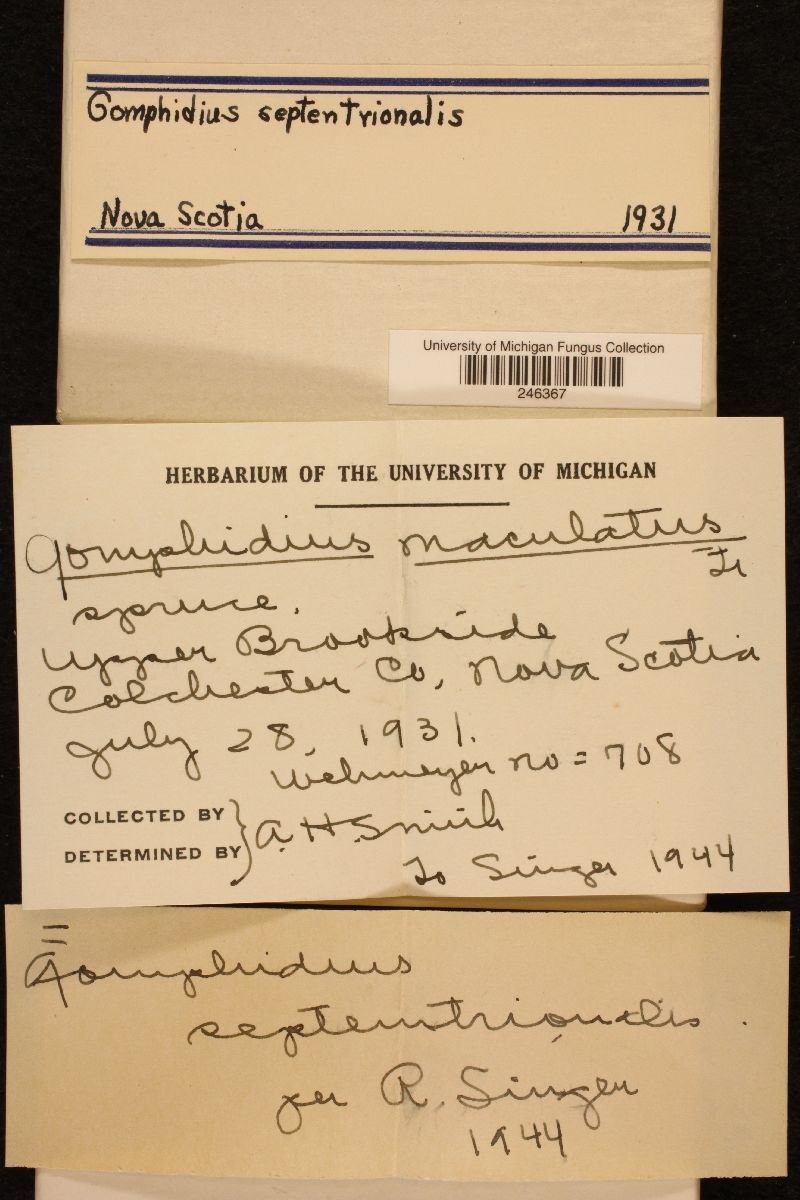 Gomphidius septentrionalis
Nova Scotia 1931
University of Michigan Fungus Collection
246367
HERBARIUM OF THE UNIVERSITY OF MICHIGAN
Gomphidius maculatus
Fr
spruce.
Upper Brookside
Colchester Co, Nova Scotia
July 28, 1931.
Wehmeyer no = 708
COLLECTED BY
DETERMINED BY
A. H. Smith
To Singer 1944
=
Gomphidius
septentrionalis.
per R. Singer
1944